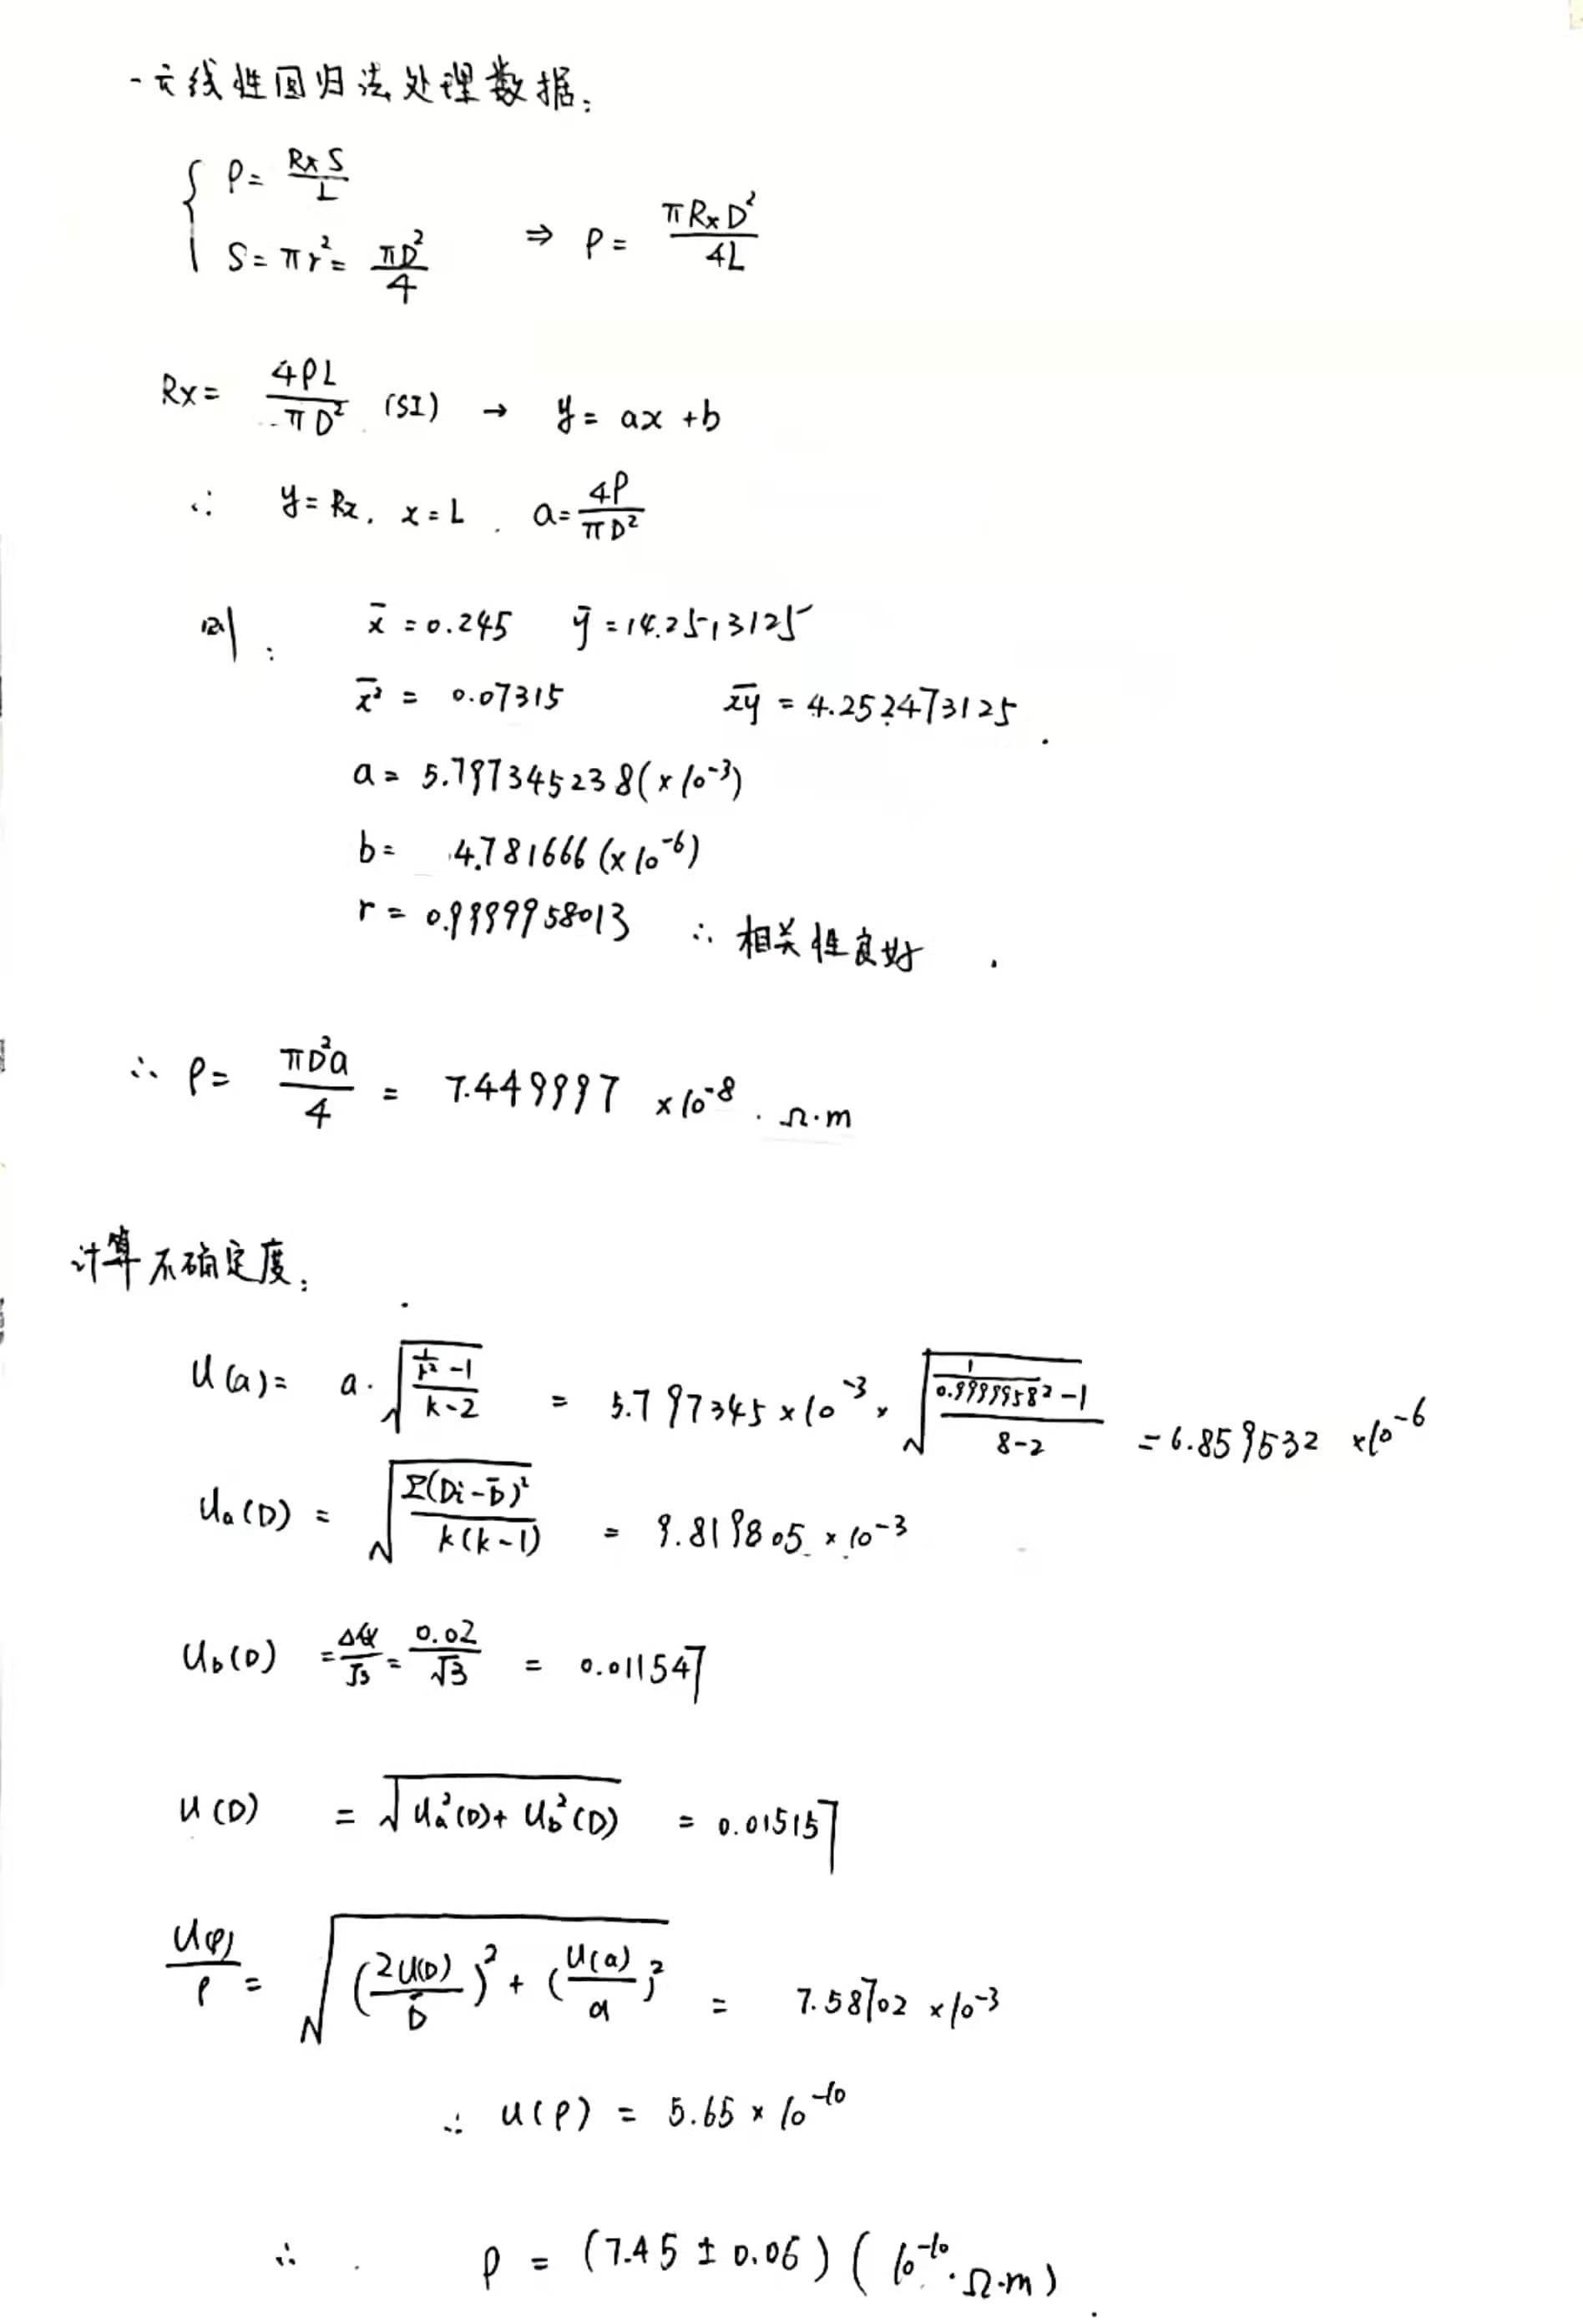 一元线性回归法处理数据:
{ ρ = RxS/L
S = πr² = πD²/4 ⇒ ρ = πRxD²/4L
Rx = 4ρL/πD² (SI) → y = ax + b
∴ y = Rx, x = L . a = 4ρ/πD²
则: x̄ = 0.245 ȳ = 14.2513125
x̄² = 0.07315 x̄ȳ = 4.252473125
a = 5.797345238(×10⁻³)
b = 4.781666(×10⁻⁶)
r = 0.9999958013 ∴ 相关性良好
∴ ρ = πD²a/4 = 7.449997 ×10⁻⁸ . Ω·m
计算不确定度:
u(a) = a · √((1/r² - 1)/(k-2)) = 5.797345×10⁻³ × √((1/0.9999958² - 1)/(8-2)) = 6.859532 ×10⁻⁶
ua(D) = √(Σ(Di - D̄)²/k(k-1)) = 9.819805 ×10⁻³
ub(D) = Δ仪/√3 = 0.02/√3 = 0.011547
u(D) = √(ua²(D) + ub²(D)) = 0.015157
u(ρ)/ρ = √((2u(D)/D̄)² + (u(a)/a)²) = 7.58702 ×10⁻³
∴ u(ρ) = 5.65 × 10⁻¹⁰
∴ ρ = (7.45 ± 0.06) (10⁻¹⁰·Ω·m)